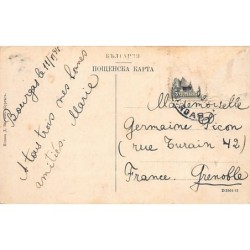 БЪЛГАРИЯ
ПОЩЕНСКА КАРТА
Bourgas le 11/
A tous trois mes bonnes
amitiés. Marie
Mademoiselle
Germaine Picon
(rue Turain 42)
France. Grenoble